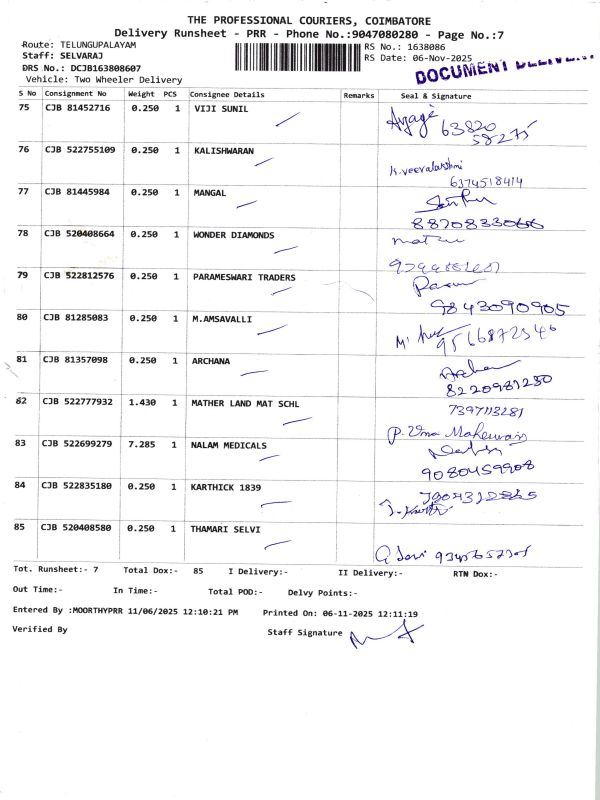 THE PROFESSIONAL COURIERS, COIMBATORE
Delivery Runsheet - PRR - Phone No.:9047080280 - Page No.:7
Route: TELUNGUPALAYAM RS No.: 1638086
Staff: SELVARAJ RS Date: 06-Nov-2025
DRS No.: DCJB163808607 DOCUMENT
Vehicle: Two Wheeler Delivery
S No Consignment No Weight PCS Consignee Details Remarks Seal & Signature
75 CJB 81452716 0.250 1 VIJI SUNIL 63820
58275
76 CJB 522755109 0.250 1 KALISHWARAN K.veeralakshmi
6374518414
77 CJB 81445984 0.250 1 MANGAL
8870833066
78 CJB 520408664 0.250 1 WONDER DIAMONDS
79 CJB 522812576 0.250 1 PARAMESWARI TRADERS
9843090905
80 CJB 81285083 0.250 1 M.AMSAVALLI
81 CJB 81357098 0.250 1 ARCHANA
8220981230
82 CJB 522777932 1.430 1 MATHER LAND MAT SCHL 7397113281
P. Uma Maheswari
83 CJB 522699279 7.285 1 NALAM MEDICALS
9080459908
84 CJB 522835180 0.250 1 KARTHICK 1839
85 CJB 520408580 0.250 1 THAMARI SELVI
Tot. Runsheet:- 7 Total Dox:- 85 I Delivery:- II Delivery:- RTN Dox:-
Out Time:- In Time:- Total POD:- Delvy Points:-
Entered By :MOORTHYPRR 11/06/2025 12:10:21 PM Printed On: 06-11-2025 12:11:19
Verified By Staff Signature